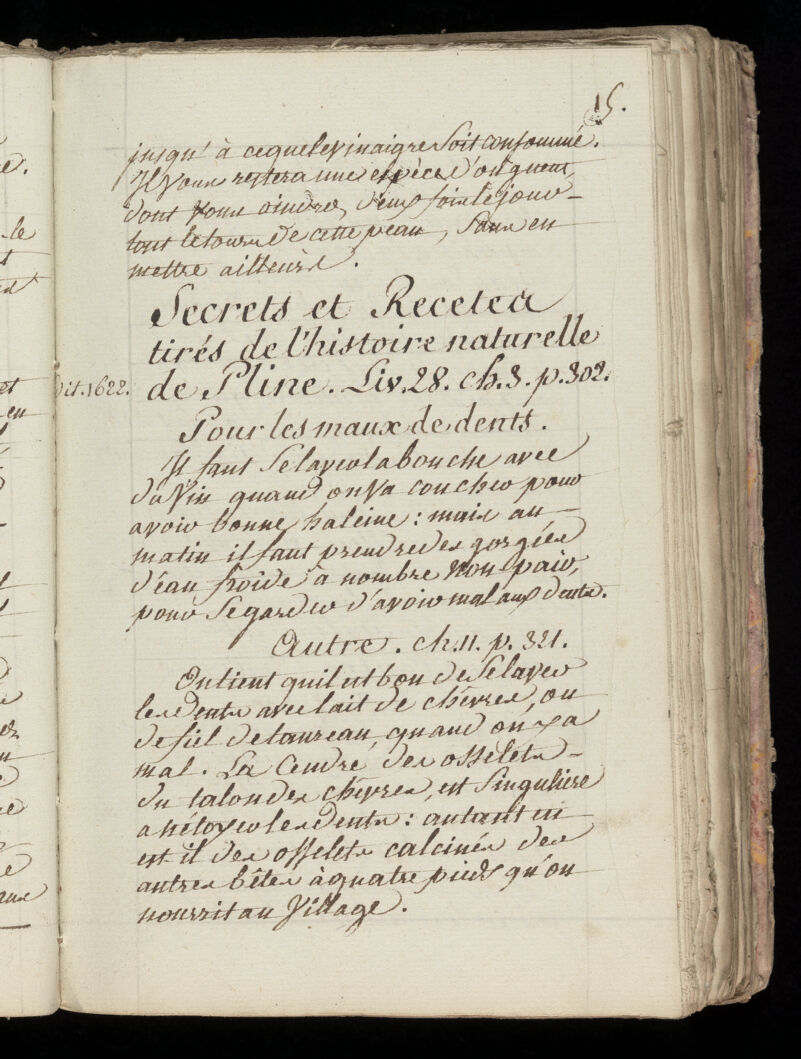 15.
jusqu'à ceque le vinaigre soit consommé.
Il vous restera une espèce d'onguent,
dont vous oindrez, deux fois le jour
tout le tour de cette peau, sans en
mettre ailleurs.
Secrets et Recetes
tirés de l'histoire naturelle
dit. 1622. de Pline. Liv. 28. ch. 3. p. 302.
Pour les maux de dents.
Il faut se laver la bouche avec
du vin quand on va coucher pour
avoir bonne haleine: mais au
matin il faut prendre des gorgées
d'eau froide à nombre non-pair,
pour se garder d'avoir mal aux dents.
Autre. ch. 11. p. 321.
On tient qu'il est bon de se laver
les dents avec lait de chèvres, ou
de fiel de taureau, quand on y a
mal. La Cendre des osselets
du talon des chèvres, est singuliere
a nétoyer les dents: autant en
est il des osselets calcinés des
autres bêtes à quatre pieds qu'on
nourrit au Village.